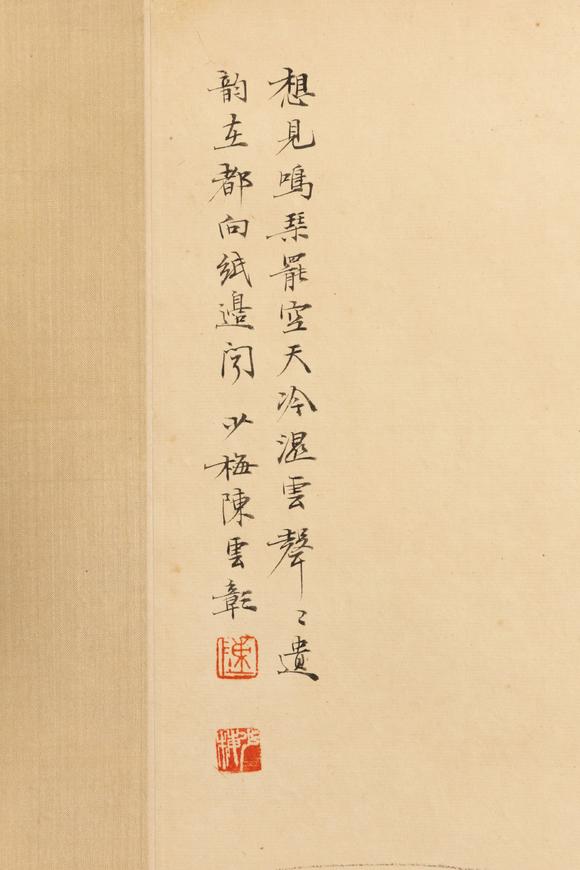 想見鳴琴罷空天冷湿雲聲〻遺
韵在都向紙邊聞 少梅陳雲彰
陳
少梅